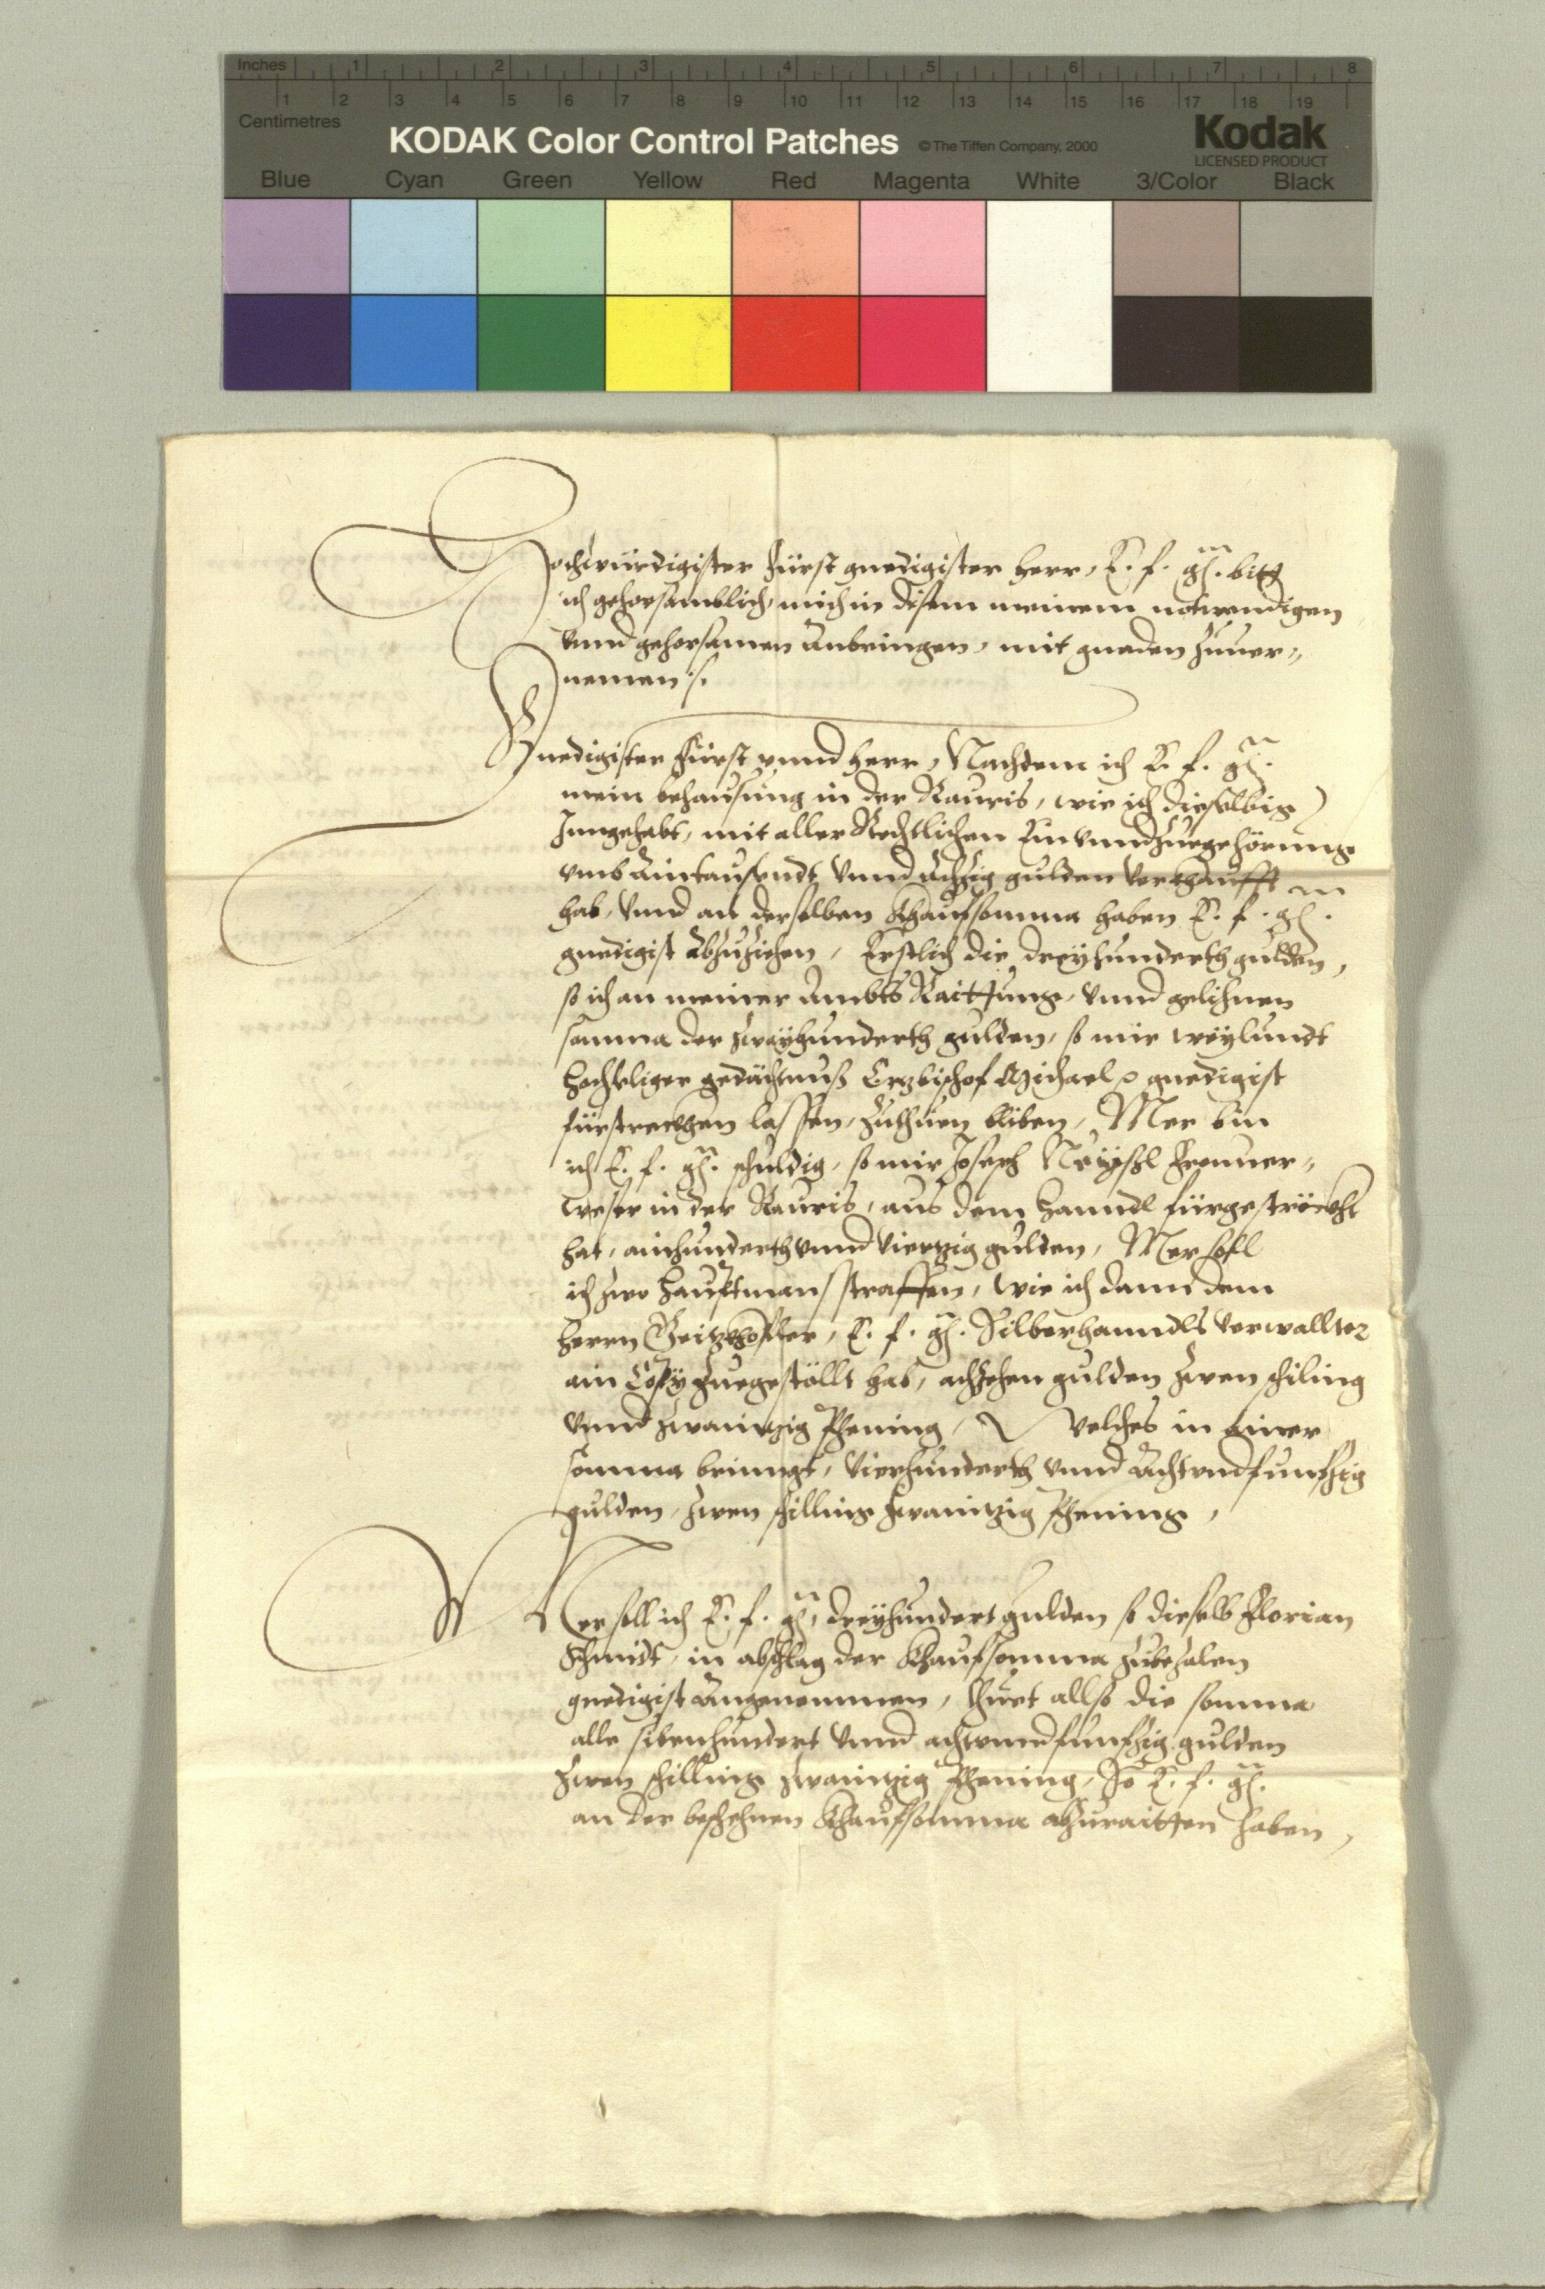 Inches 1 2 3 4 5 6 7 8
1 2 3 4 5 6 7 8 9 10 11 12 13 14 15 16 17 18 19
Centimetres
KODAK Color Control Patches © The Tiffen Company, 2000 Kodak
LICENSED PRODUCT
Blue Cyan Green Yellow Red Magenta White 3/Color Black
Hochwürdigister Fürst gnedigister herr, E. f. gn. bitt
ich gehorsamblich, mich in disem meinem notwendigen
vnnd gehorsamen Anbringen, mit gnaden zuuer-
nemen.
Gnedigister Fürst vnnd herr, Nachdem ich E. f. gn.
mein behausung in der Rauris, wie ich dieselbig
Inngehabt, mit aller Rechtlichen Ein vnnd Zuegehörung
vmb Aintausendt vnnd Achtzig gulden verkhaufft
hab, Vnnd an derselben Khaufsomma haben E. f. gn.
gnedigist Abzuziehen, Erstlich die dreyhunderth gulden,
so ich an meiner Ambts Raittung, vnnd gelihnen
somma der zwayhunderth gulden, so mir weylundt
hochseliger gedächtnuß Erzbischof Michael gnedigist
fürstreckhen lassen, zuthuen bliben, Mer bin
ich E. f. gn. schuldig, so mir Joseph Fronner-
weser in der Rauris, aus dem hanndl fürgestreckht
hat, ainhunderth vnnd Viertzig gulden, Mer soll
ich zwo Hauptman straffen, wie ich dann dem
herrn Geitzkhofler, E. f. gn. Silberhanndls verwallter
ain Copy zuegestöllt hab, achtzehen gulden zwen schiling
vnnd zwaintzig Phening, Welches in ainer
somma bringt, Vierhunderth vnnd Achtvndfunfzig
gulden, zwen schilling zwaintzig Phening,
Mer soll ich E. f. gn. dreyhundert gulden so dieselb Florian
Schmidt, in abschlag der Khaufsomma zubezalen
gnedigist Angenommen, thuet allso die somma
alle sibenhundert vnnd achtvnndfunfzig gulden
zwen schilling zwaintzig Phening, So E. f. gn.
an der beschehnen Khaufsomma abzuraitten haben,